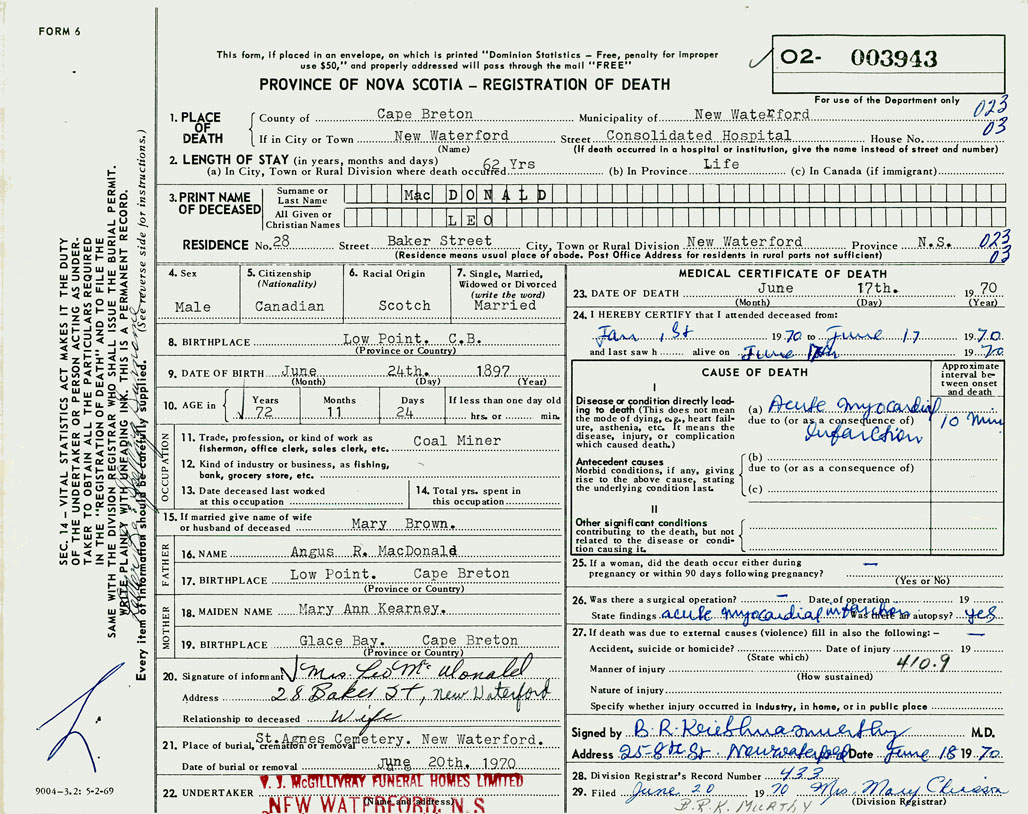 FORM 6
This form, if placed in an envelope, on which is printed "Dominion Statistics – Free, penalty for improper
use $50," and properly addressed will pass through the mail "FREE"
PROVINCE OF NOVA SCOTIA – REGISTRATION OF DEATH
02- 003943
For use of the Department only
1. PLACE OF DEATH
County of Cape Breton Municipality of New Waterford 023
If in City or Town New Waterford Street Consolidated Hospital House No. 03
(Name) (If death occurred in a hospital or institution, give the name instead of street and number)
2. LENGTH OF STAY (in years, months and days)
(a) In City, Town or Rural Division where death occurred 62 Yrs (b) In Province Life (c) In Canada (if immigrant)
3. PRINT NAME OF DECEASED
Surname or Last Name MacDONALD
All Given or Christian Names LEO
RESIDENCE No. 28 Street Baker Street City, Town or Rural Division New Waterford Province N.S. 023
(Residence means usual place of abode. Post Office Address for residents in rural parts not sufficient) 03
4. Sex
Male
5. Citizenship
(Nationality)
Canadian
6. Racial Origin
Scotch
7. Single, Married,
Widowed or Divorced
(write the word)
Married
8. BIRTHPLACE Low Point. C.B.
(Province or Country)
9. DATE OF BIRTH June 24th. 1897
(Month) (Day) (Year)
10. AGE in
Years Months Days If less than one day old
72 11 24 hrs. or min.
OCCUPATION
11. Trade, profession, or kind of work as
fisherman, office clerk, sales clerk, etc. Coal Miner
12. Kind of industry or business, as fishing,
bank, grocery store, etc.
13. Date deceased last worked
at this occupation
14. Total yrs. spent in
this occupation
15. If married give name of wife
or husband of deceased Mary Brown.
FATHER
16. NAME Angus R. MacDonald
17. BIRTHPLACE Low Point. Cape Breton
(Province or Country)
MOTHER
18. MAIDEN NAME Mary Ann Kearney.
19. BIRTHPLACE Glace Bay. Cape Breton
(Province or Country)
20. Signature of informant Mrs. Leo McDonald
Address 28 Baker St, New Waterford
Relationship to deceased Wife
21. Place of burial, cremation or removal St.Agnes Cemetery. New Waterford.
Date of burial or removal June 20th. 1970
22. UNDERTAKER V. J. McGILLIVRAY FUNERAL HOMES LIMITED
(Name and address)
NEW WATERFORD, N.S
MEDICAL CERTIFICATE OF DEATH
23. DATE OF DEATH June 17th. 1970
(Month) (Day) (Year)
24. I HEREBY CERTIFY that I attended deceased from:
Jan, 1st 1970 to June 17 1970
and last saw h alive on June 17th 1970
CAUSE OF DEATH
Approximate
interval be-
tween onset
and death
I
Disease or condition directly lead-
ing to death (This does not mean
the mode of dying, e.g., heart fail-
ure, asthenia, etc. It means the
disease, injury, or complication
which caused death.)
(a) Acute myocardial
due to (or as a consequence of) 10 Min
Infarction
Antecedent causes
Morbid conditions, if any, giving
rise to the above cause, stating
the underlying condition last.
(b)
due to (or as a consequence of)
(c)
II
Other significant conditions
contributing to the death, but not
related to the disease or condi-
tion causing it.
25. If a woman, did the death occur either during
pregnancy or within 90 days following pregnancy? —
(Yes or No)
26. Was there a surgical operation? — Date of operation 19
State findings acute myocardial infarction Was there an autopsy? yes
27. If death was due to external causes (violence) fill in also the following: – —
Accident, suicide or homicide? Date of injury 19
(State which) 410.9
Manner of injury
(How sustained)
Nature of injury
Specify whether injury occurred in industry, in home, or in public place
Signed by M.D.
Address 25-8th St. New Waterford Date June 18 1970
28. Division Registrar's Record Number 433
29. Filed June 20 1970 Mrs. Mary Chiasson
(Division Registrar)
B.R.K MURTHY
SEC. 14 – VITAL STATISTICS ACT MAKES IT THE DUTY
OF THE UNDERTAKER OR PERSON ACTING AS UNDER-
TAKER TO OBTAIN ALL THE PARTICULARS REQUIRED
IN THE "REGISTRATION OF DEATH" AND TO FILE THE
SAME WITH THE DIVISION REGISTRAR WHO SHALL ISSUE THE BURIAL PERMIT.
WRITE PLAINLY WITH UNFADING INK. THIS IS A PERMANENT RECORD.
Every item of information should be carefully supplied. (See reverse side for instructions.)
9004-3.2: 5-2-69